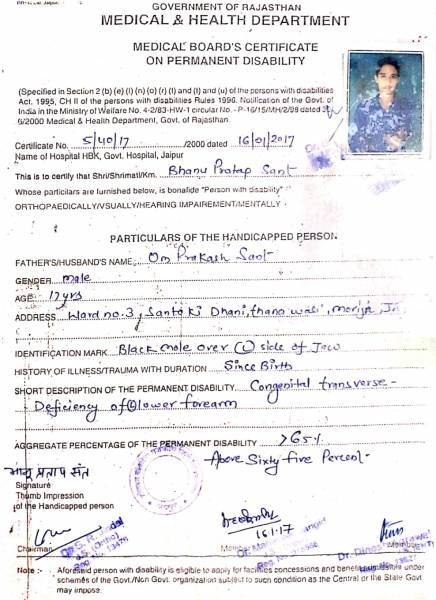 GOVERNMENT OF RAJASTHAN
MEDICAL & HEALTH DEPARTMENT
MEDICAL BOARD'S CERTIFICATE
ON PERMANENT DISABILITY
(Specified in Section 2 (b) (e) (l) (n) (o) (r) (l) and (t) and (u) of the persons with disabilities
Act. 1995, CH II of the persons with disabilities Rules 1996. Notification of the Govt. of
India in the Ministry of Welfare No. 4-2/83-HW-1 circular No.- P-16/15/MH/2/98 dated
6/2000 Medical & Health Department, Govt. of Rajasthan.
Certificate No. 5/40/17 /2000 dated 16/01/2017
Name of Hospital HBK, Govt. Hospital, Jaipur
This is to certify that Shri/Shrimati/Km. Bhanu Pratap Sant
Whose particulars are furnished below, is bonafide "Person with disability"
ORTHOPAEDICALLY/VSUALLY/HEARING IMPAIREMENT/MENTALLY
PARTICULARS OF THE HANDICAPPED PERSON
FATHER'S/HUSBAND'S NAME Om Prakash Sant
GENDER male
AGE 17 yrs
ADDRESS Ward no. 3, Santo ki Dhani,
IDENTIFICATION MARK Black mole over (L) side of Jaw
HISTORY OF ILLNESS/TRAUMA WITH DURATION Since Birth
SHORT DESCRIPTION OF THE PERMANENT DISABILITY Congenital transverse -
Deficiency of lower forearm
AGGREGATE PERCENTAGE OF THE PERMANENT DISABILITY >65%
Above Sixty five Percent
भानु प्रताप संत
Signature
Thumb Impression
of the Handicapped person
16.1.17
Chairman Member Member
Note :- Aforesaid person with disability is eligible to apply for facilities concessions and benefits under
schemes of the Govt./Non Govt. organization subject to such condition as the Central or the State Govt
may impose.